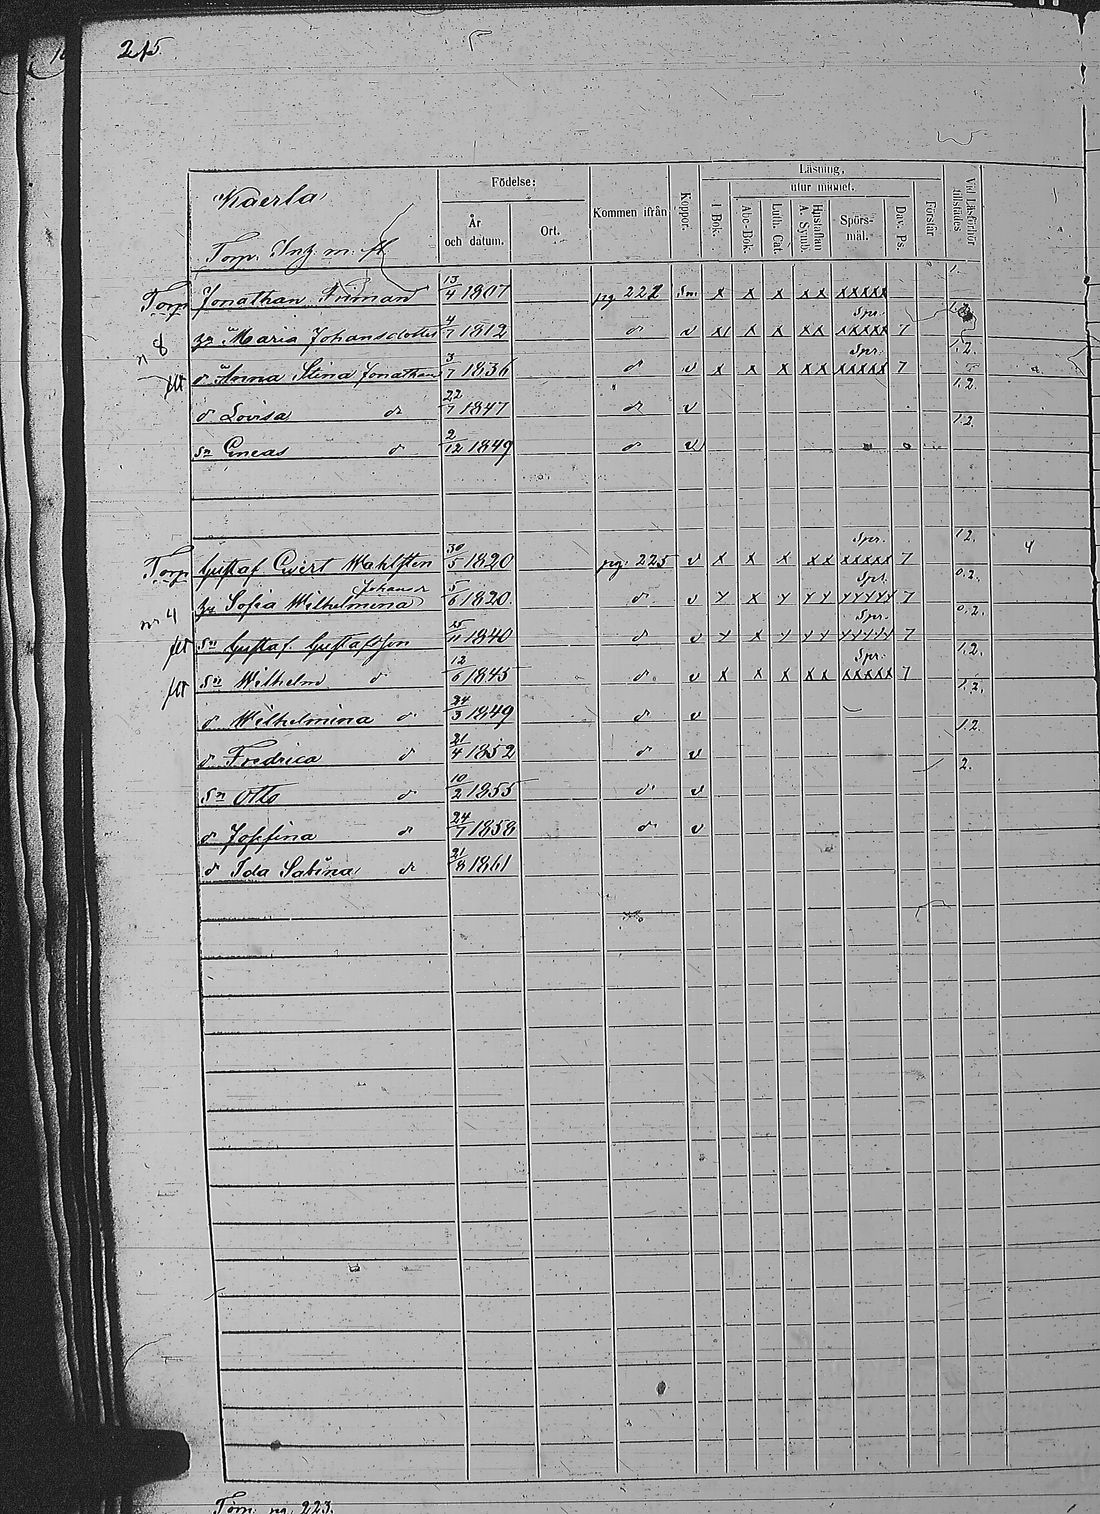 215.
Kaerla
Torp. Inh. m. fl.
Födelse:
År och datum.
Ort.
Kommen ifrån
Koppor.
Läsning,
utur minnet.
I Bok.
Abc-Bok.
Luth. Cat.
Hustaflan A. Symb.
Spörs-mål.
Dav. Ps.
Förstår
Vid Läsförhör tillstädes
Torp. Jonathan 13/4 1807 pg 222 x x x x x xxxxx 1.
Spr.
n 8 Maria Johansdotter 4/7 1812 d v x x x x x xxxxx 7
Spr. 1.2.
d Anna Stina Jonathans 3/7 1836 d v x x x x x xxxxx 7
1.2.
d Lovisa d 22/7 1847 d v
1.2.
sn Eneas d 2/12 1849 d v
Spr. 1.2.
Torp. Gustaf Evert Wahlsten 30/5 1820 pg. 225 v x x x x x xxxxx 7 4
Johansd Spr. 0.2.
nr 4 Sofia Wilhelmina 5/6 1820. d v x x x x x xxxxx 7
Spr. 0.2.
sn Gustaf Gustafsson 15/11 1840 d v x x x x x xxxxx 7
Spr. 1.2.
sn Wilhelm d 12/6 1845 d v x x x x x xxxxx 7
1.2.
d Wilhelmina d 24/3 1849 d v
1.2.
d Fredrica d 21/4 1852 d v
2.
sn Otto d 10/2 1855 d v
d Josefina d 24/7 1858 d v
d Ida Sabina d 21/8 1861
Torp. pg. 223.